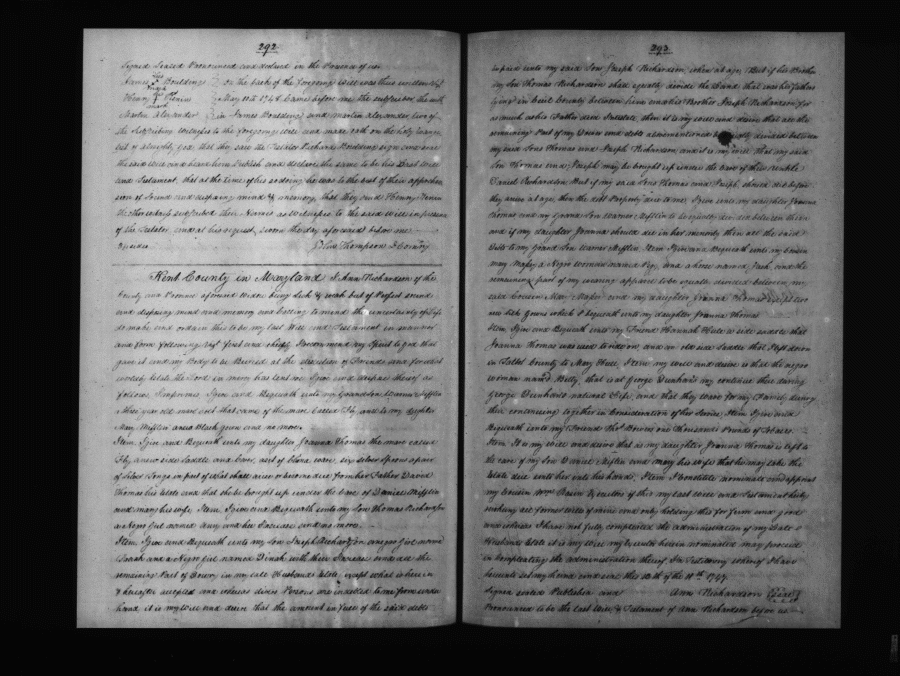 292
Signed Sealed Pronounced and declared in the Presence of us
James Boulding on the back of the foregoing Will was thus written Viz
Henny Pinnin May 10th 1748 Came before me the subscriber the
Martin Alexander James Boulding and Martin Alexander two of
the subscribing Witnesses to the foregoing Will and made oath on the holy Evangs
of almighty God that they saw the Testator Richard Boulding sign and seal
the said Will and heard him Publish and declare the same to be his Last Will
and Testament that at the time of his so doing he was to the best of their apprehen
sion of Sound and disposing mind & memory, that they and Henny
the other subscribed their Names as Witnesses to the said Will in presence
of the Testator and at his request sworn the day aforesaid before me
John Thompson D Comry
Kent County in Maryland I Ann Richardson of the
County and Province aforesaid Widow being Sick & weak but of Perfect sound
and disposing mind and memory and calling to mind the uncertainty of life
do make and ordain this to be my last Will and Testament in manner
and form following Viz first and chiefly I recommend my Spirit to God that
gave it and my Body to be Buried at the discretion of Friends and for what
worldly Estate the Lord in mercy has lent me I give and dispose thereof as
follows Imprimis I give and Bequeath unto my Grandson Warner Mifflin
a three year old mare Colt that came of the mare called Fly and to my Daughter
Mary Mifflin and a Black gown and no more
Item I give and Bequeath unto my daughter Joanna Thomas the mare called
Fly a new side Saddle and cover, sett of China ware, six silver Spoons a pair
of silver Tongs in part of what shall arise or become due from her Father David
Thomas his Estate and that she be brought up under the care of Daniel Mifflin
and Mary his wife Item I give and Bequeath unto my Son Thomas Richardson
a Negro Girl named Amy and her Increase and no more
Item I give and Bequeath unto my Son Joseph Richardson a negro Girl named
Sarah and a Negro Girl named Dinah with their Increase and all the
remaining Part of Dower in my late Husbands Estate except what is herein
& hereafter excepted and whereas divers Persons are indebted to me from under
hand it is my will and desire that the amount in full of the said debts
293
be paid unto my said Son Joseph Richardson when at age But if his Brother
my Son Thomas Richardson shall equally divide the Land that was his fathers
lying in Kent County between him and his Brother Joseph Richardson for
as much as his Father died Intestate then it is my will and desire that all the
remaining Part of my Dower and debts abovementioned be equally divided between
my said Sons Thomas and Joseph Richardson and it is my will that my said
Son Thomas and Joseph may be brought up under the care of their uncle
Daniel Richardson But if my said Sons Thomas and Joseph should die before
they arrive at age, then the debt Property and I give unto my daughter Joanna
Thomas and my Grand Son Warner Mifflin to be equally divided between them
and if my daughter Joanna should die in her minority then all the said
debts to my Grand Son Warner Mifflin Item I give and Bequeath unto my Cousin
Mary Maxfy a Negro woman named Peg, and a horse named Jack and the
remaining part of my wearing apparel to be equally divided between my
said Cousin Mary Maxfy and my daughter Joanna Thomas except
one silk Gown which I Bequeath unto my daughter Joanna Thomas
Item I give and Bequeath unto my Friend Hannah Hull a side saddle that
Joanna Thomas was used to ride on, and an old side Saddle that I left down
in Talbot County to Mary Hull Item my will and desire is that the negro
woman nam'd Betty, that is at George Dunhams may continue there during
George Dunhams natural Life, and that they care for my Family during
their continuing together in Consideration of her Service Item I give and
Bequeath unto my Friend Thos Bowers one Thousand Pounds of Tobacco
Item It is my will and desire that is my daughter Joanna Thomas is left to
the care of my Son Daniel Mifflin and Mary his wife that he may take the
Estate due unto her into his hands, Item I Constitute nominate and appoint
my Cousin Wm Executor of this my last Will and Testament hereby
revoking all former Wills of mine and only holding this for firm and good
and whereas I have not fully compleated the administration of my Late
Husbands Estate it is my will my Executor herein nominated may proceed
in Compleating the administration thereof In Testimony whereof I have
hereunto set my hand and seal this 20th of the 11th 1747
Signed sealed Publish'd and Ann Richardson (Seal)
Pronounced to be the last Will & Testament of Ann Richardson before us